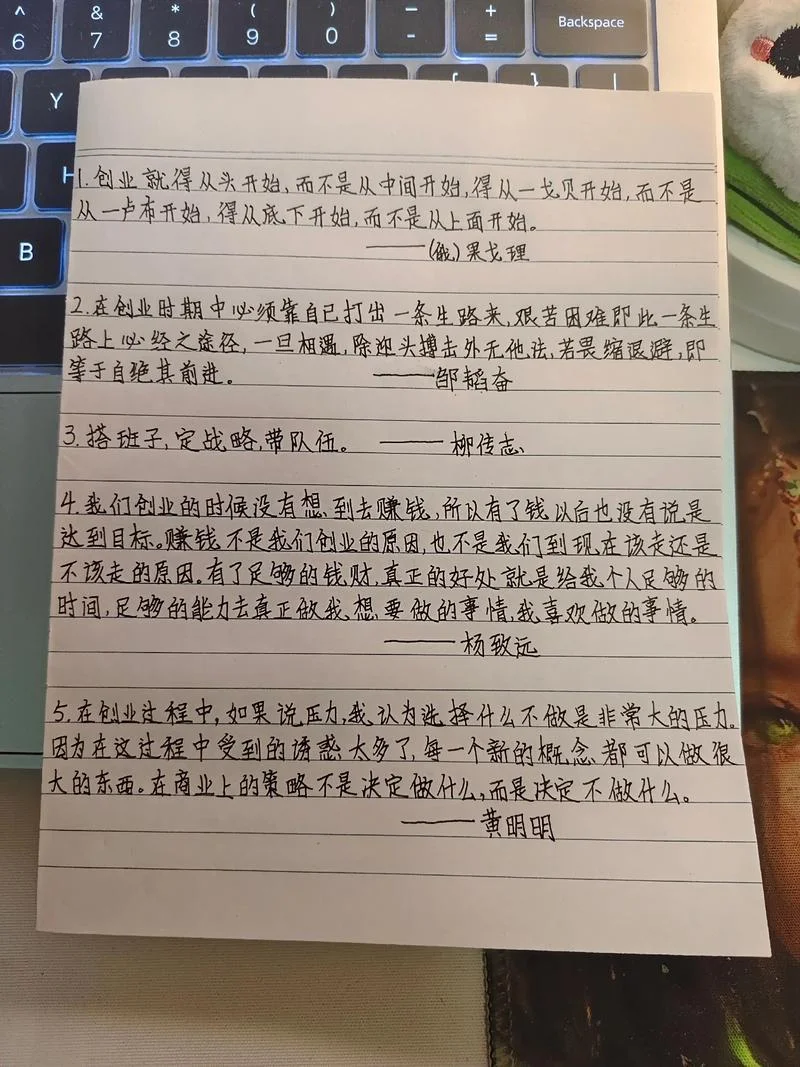 ^ & * ( ) - +
6 7 8 9 0 - = Backspace
Y { } |
H
B
1.创业就得从头开始,而不是从中间开始,得从一戈贝开始,而不是
从一卢布开始,得从底下开始,而不是从上面开始。
——(俄)果戈理
2.在创业时期中必须靠自己打出一条生路来,艰苦困难即此一条生
路上必经之途径,一旦相遇,除迎头搏击外无他法,若畏缩退避,即
等于自绝其前进。 ——邹韬奋
3.搭班子,定战略,带队伍。 ——柳传志
4.我们创业的时候没有想到去赚钱,所以有了钱以后也没有说是
达到目标。赚钱不是我们创业的原因,也不是我们到现在该走还是
不该走的原因。有了足够的钱财,真正的好处就是给我个人足够的
时间,足够的能力去真正做我想要做的事情,我喜欢做的事情。
——杨致远
5.在创业过程中,如果说压力,我认为选择什么不做是非常大的压力。
因为在这过程中受到的诱惑太多了,每一个新的概念都可以做很
大的东西。在商业上的策略不是决定做什么,而是决定不做什么。
——黄明明